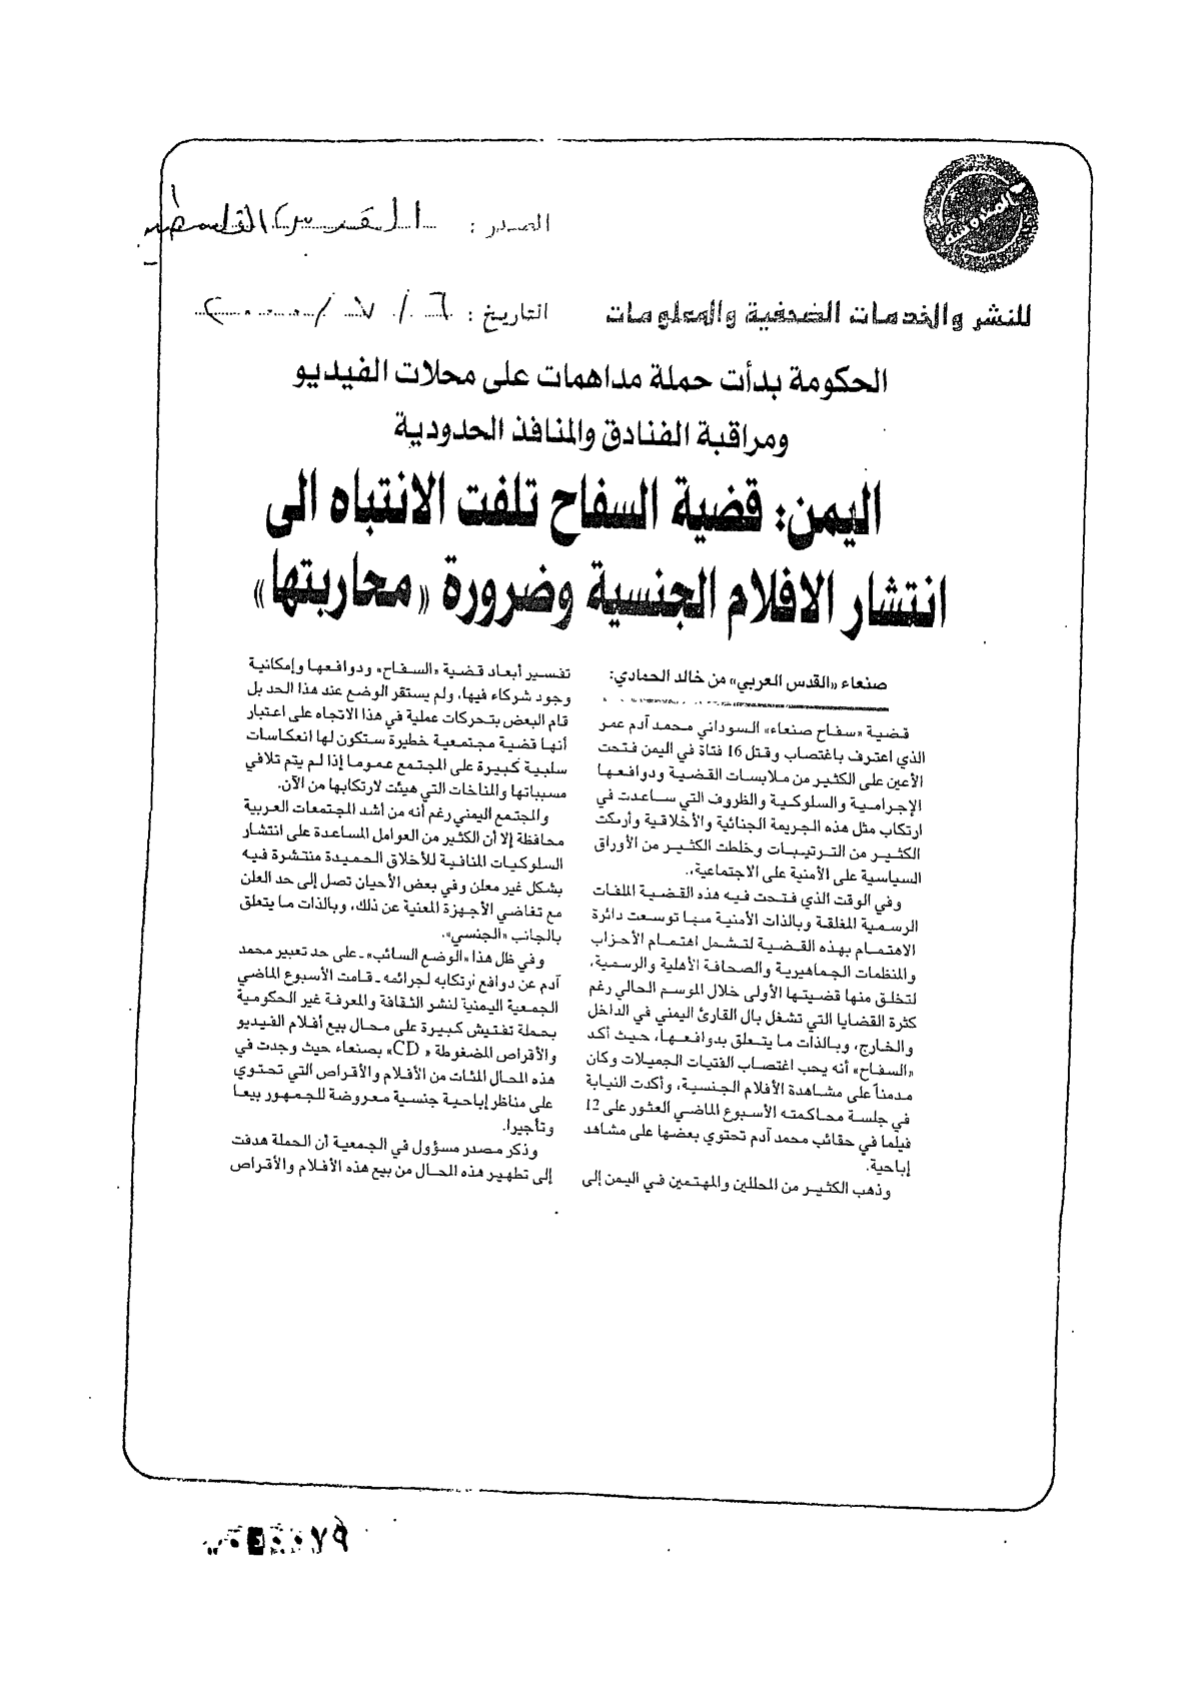 المصدر : القدس الفلسطينية
للنشر والخدمات الصحفية والمعلومات
التاريخ : ٦ / ٧ / ٢٠٠٠
الحكومة بدأت حملة مداهمات على محلات الفيديو
ومراقبة الفنادق والمنافذ الحدودية
اليمن: قضية السفاح تلفت الانتباه الى
انتشار الافلام الجنسية وضرورة «محاربتها»
صنعاء «القدس العربي» من خالد الحمادي:
قضية «سفاح صنعاء» السوداني محمد آدم عمر
الذي اعترف باغتصاب وقتل 16 فتاة في اليمن فتحت
الأعين على الكثير من ملابسات القضية ودوافعها
الإجرامية والسلوكية والظروف التي ساعدت في
ارتكاب مثل هذه الجريمة الجنائية والأخلاقية وأربكت
الكثير من الترتيبات وخلطت الكثير من الأوراق
السياسية على الأمنية على الاجتماعية.
وفي الوقت الذي فتحت فيه هذه القضية الملفات
الرسمية المغلقة وبالذات الأمنية منها توسعت دائرة
الاهتمام بهذه القضية لتشمل اهتمام الأحزاب
والمنظمات الجماهيرية والصحافة الأهلية والرسمية،
لتخلق منها قضيتها الأولى خلال الموسم الحالي رغم
كثرة القضايا التي تشغل بال القارئ اليمني في الداخل
والخارج، وبالذات ما يتعلق بدوافعها، حيث أكد
«السفاح» أنه يحب اغتصاب الفتيات الجميلات وكان
مدمناً على مشاهدة الأفلام الجنسية، وأكدت النيابة
في جلسة محاكمته الأسبوع الماضي العثور على 12
فيلما في حقائب محمد آدم تحتوي بعضها على مشاهد
إباحية.
وذهب الكثير من المحللين والمهتمين في اليمن إلى
تفسير أبعاد قضية «السفاح» ودوافعها وإمكانية
وجود شركاء فيها، ولم يستقر الوضع عند هذا الحد بل
قام البعض بتحركات عملية في هذا الاتجاه على اعتبار
أنها قضية مجتمعية خطيرة ستكون لها انعكاسات
سلبية كبيرة على المجتمع عموما إذا لم يتم تلافي
مسبباتها والمناخات التي هيئت لارتكابها من الآن.
والمجتمع اليمني رغم أنه من أشد المجتمعات العربية
محافظة إلا أن الكثير من العوامل المساعدة على انتشار
السلوكيات المنافية للأخلاق الحميدة منتشرة فيه
بشكل غير معلن وفي بعض الأحيان تصل إلى حد العلن
مع تغاضي الأجهزة المعنية عن ذلك، وبالذات ما يتعلق
بالجانب «الجنسي».
وفي ظل هذا «الوضع السائب» ـ على حد تعبير محمد
آدم عن دوافع ارتكابه لجرائمه ـ قامت الأسبوع الماضي
الجمعية اليمنية لنشر الثقافة والمعرفة غير الحكومية
بحملة تفتيش كبيرة على محال بيع أفلام الفيديو
والأقراص المضغوطة «CD» بصنعاء حيث وجدت في
هذه المحال المئات من الأفلام والأقراص التي تحتوي
على مناظر إباحية جنسية معروضة للجمهور بيعا
وتأجيرا.
وذكر مصدر مسؤول في الجمعية أن الحملة هدفت
إلى تطهير هذه المحال من بيع هذه الأفلام والأقراص